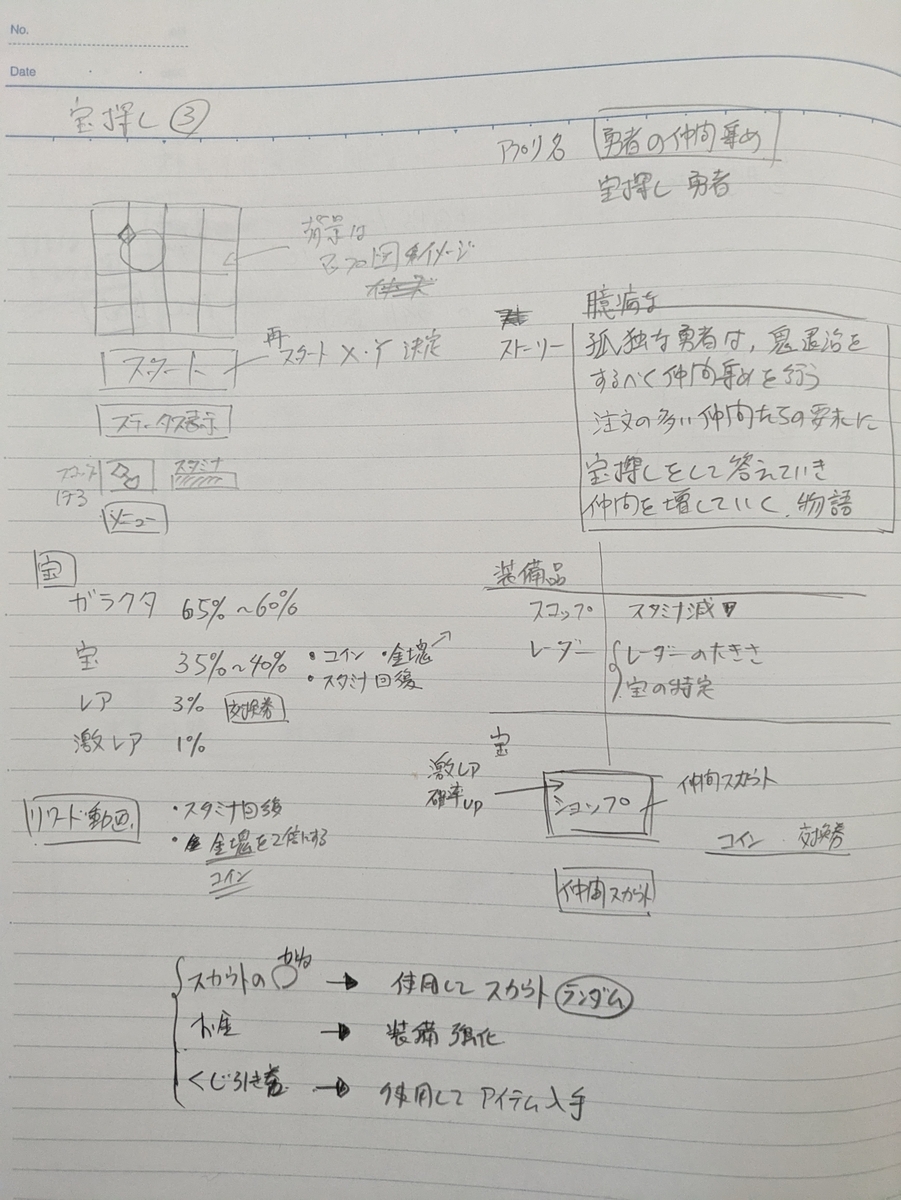 No.
Date
宝探し ③
アプリ名 勇者の仲間集め
宝探し 勇者
背景は
マップ図イメージ
スタート
再
スタート X・Y 決定
ステータス表示
スコップ
スタミナ
メニュー
臆病な
ストーリー
孤独な勇者は、鬼退治を
するべく仲間集めを行う
注文の多い仲間たちの要求に
宝探しをして答えていき
仲間を増していく、物語
宝
ガラクタ 65%～60%
宝 35%～40% ・コイン ・金塊
・スタミナ回復
レア 3% 交換券
激レア 1%
装備品
スコップ スタミナ減
レーダー レーダーの大きさ
宝の特定
宝
激レア
確率up
ショップ
仲間スカウト
コイン 交換券
仲間スカウト
リワード動画
・スタミナ回復
・金塊を2倍にする
コイン
スカウトの → 使用して スカウト ランダム
お金 → 装備 強化
くじ引き券 → 使用して アイテム入手